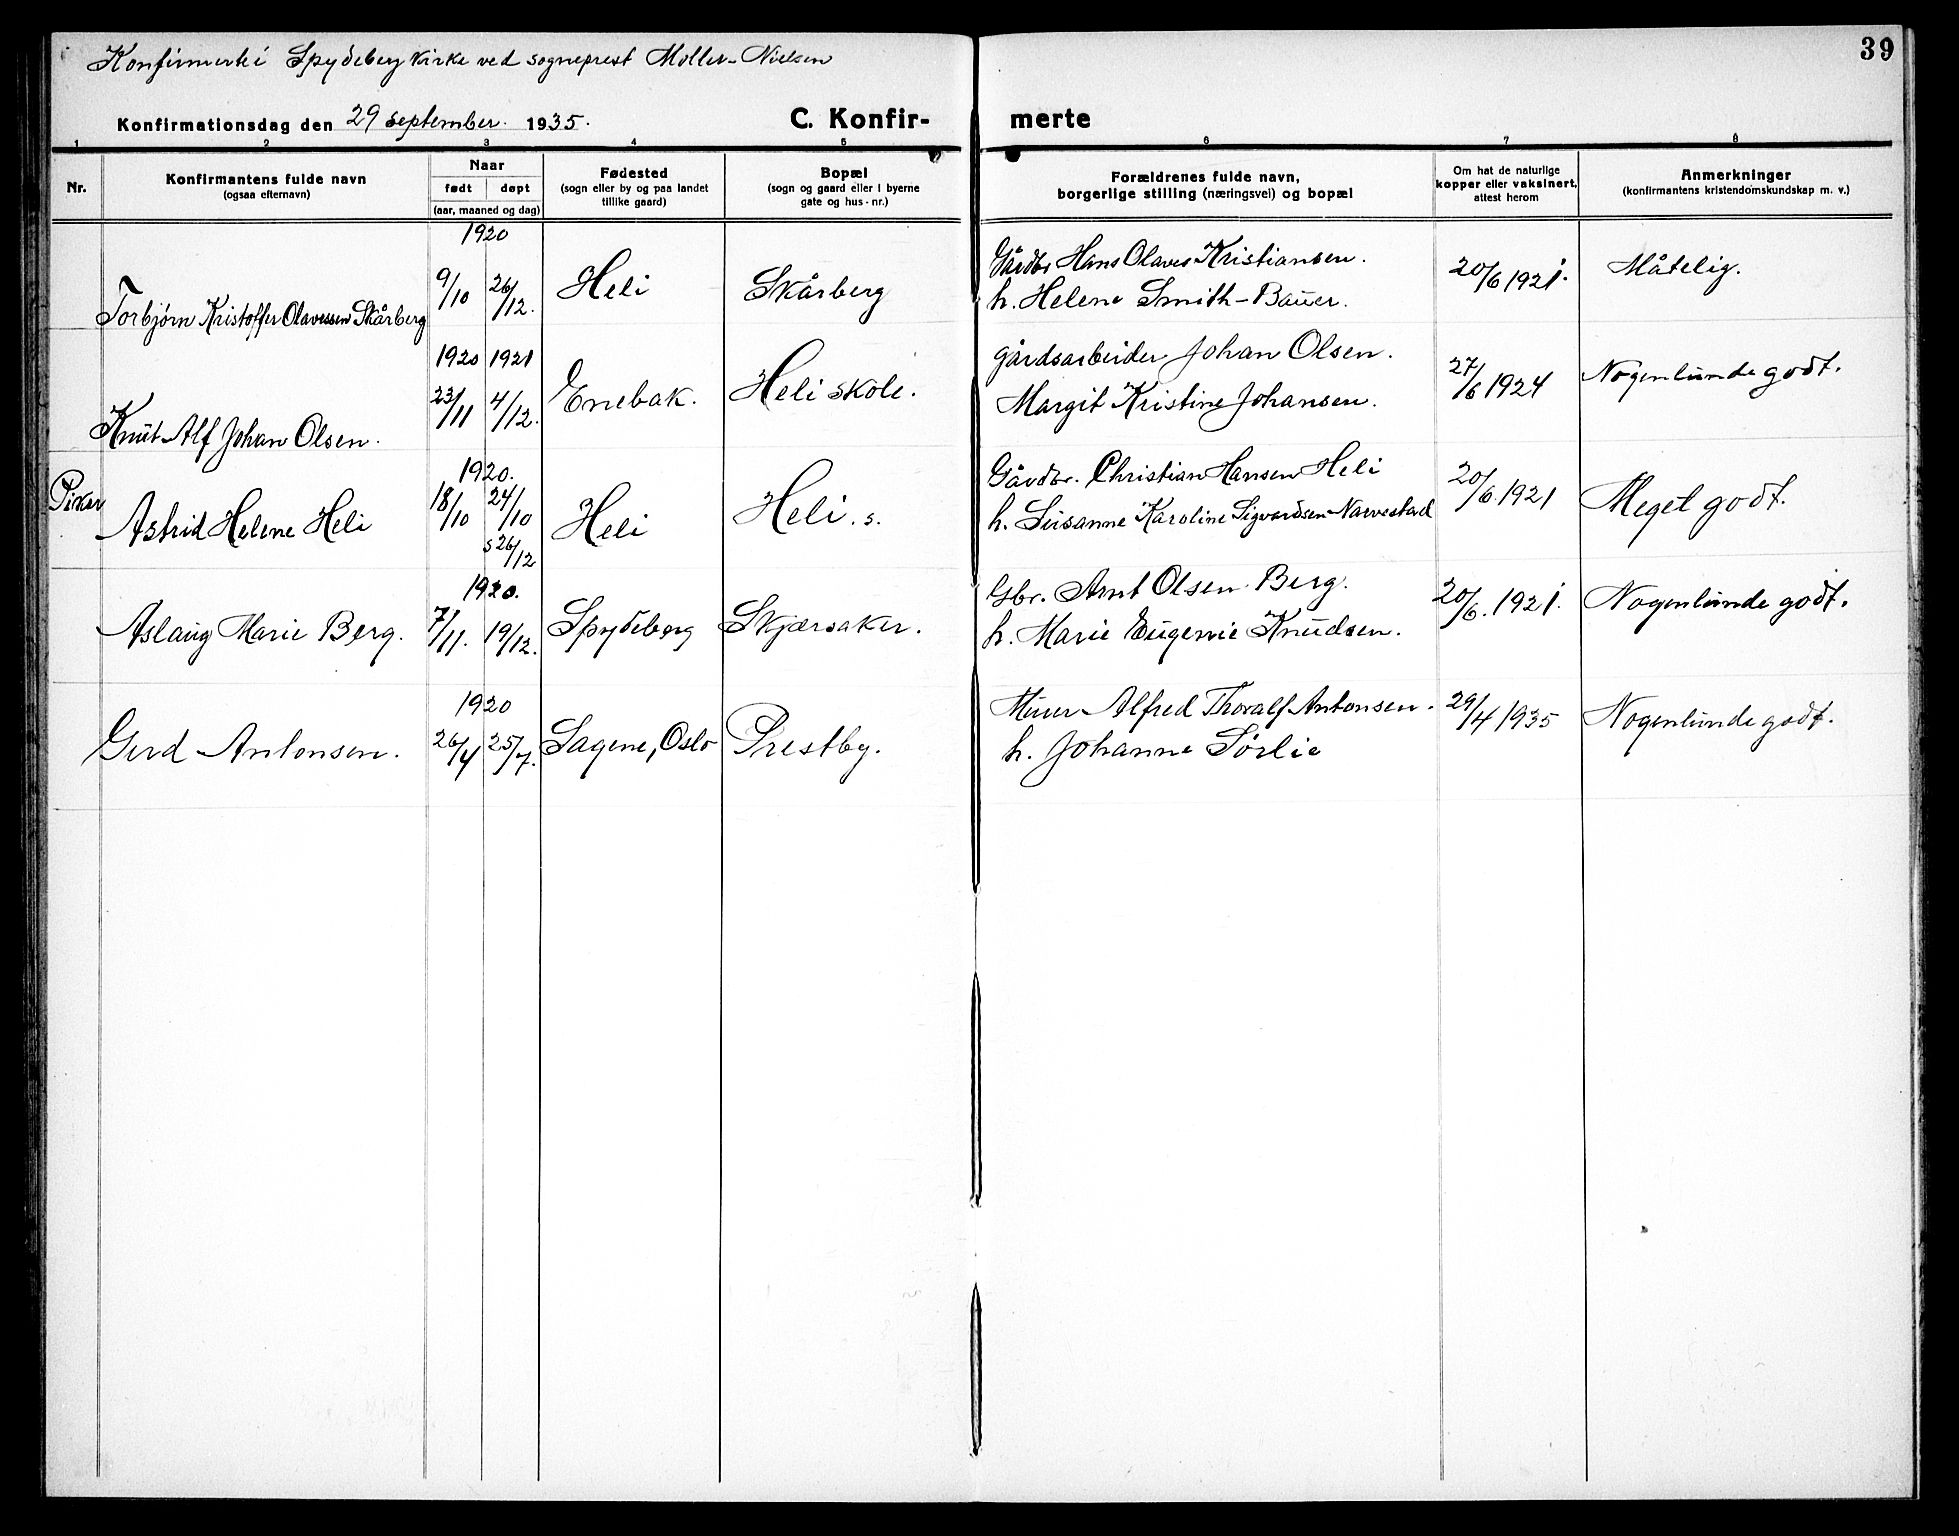 39
Konfirmerte i Spydeberg kirke ved sogneprest Møller-Nielsen
Konfirmationsdag den 29 september. 1935.
C. Konfir-
merte
1 2 3 4 5 6 7 8
Nr.
Konfirmantens fulde navn
(ogsaa efternavn)
Naar
født døpt
(aar, maaned og dag)
Fødested
(sogn eller by og paa landet
tillike gaard)
Bopæl
(sogn og gaard eller i byerne
gate og hus-nr.)
Forældrenes fulde navn,
borgerlige stilling (næringsvei) og bopæl
Om hat de naturlige
kopper eller vaksinert,
attest herom
Anmerkninger
(konfirmantens kristendomskundskap m. v.)
1920
Torbjørn Kristoffer Olavessen Skårberg
9/10 26/12.
Heli
Skårberg
Gårdbr Hans Olaves Kristiansen.
h. Helene Smith-Bauer.
20/6 1921.
Måtelig.
1920 1921
Knut Alf Johan Olsen.
23/11 4/12.
Enebak.
Heli skole.
gårdsarbeider Johan Olsen.
Margit Kristine Johansen.
27/6 1924
Nogenlunde godt.
Piker
1920.
Astrid Helene Heli
18/10 24/10
s 26/12
Heli
Heli. s.
Gårdbr. Christian Hansen Heli
h. Susanne Karoline Sigvardsen Narvestad
20/6 1921
Meget godt.
1920.
Aslaug Marie Berg.
7/11. 19/12.
Spydeberg
Skjærsaker.
Gbr. Arnt Olsen Berg.
h. Marie Eugenie Knudsen.
20/6. 1921.
Nogenlunde godt.
1920
Gerd Antonsen.
26/4 25/7.
Sagene, Oslo
Prestby.
Murer Alfred Thoralf Antonsen.
h. Johanne Sørlie
29/4 1935
Nogenlunde godt.